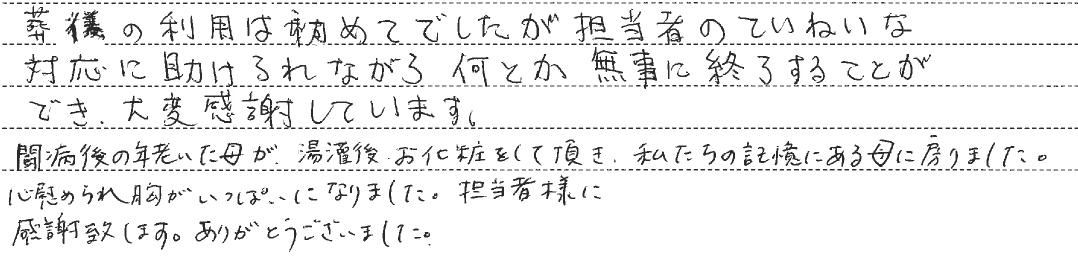 葬儀の利用は初めてでしたが担当者のていねいな
対応に助けられながら何とか無事に終了することが
でき、大変感謝しています。
闘病後の年老いた母が、湯灌後、お化粧をして頂き、私たちの記憶にある母に戻りました。
心慰められ胸がいっぱいになりました。担当者様に
感謝致します。ありがとうございました。